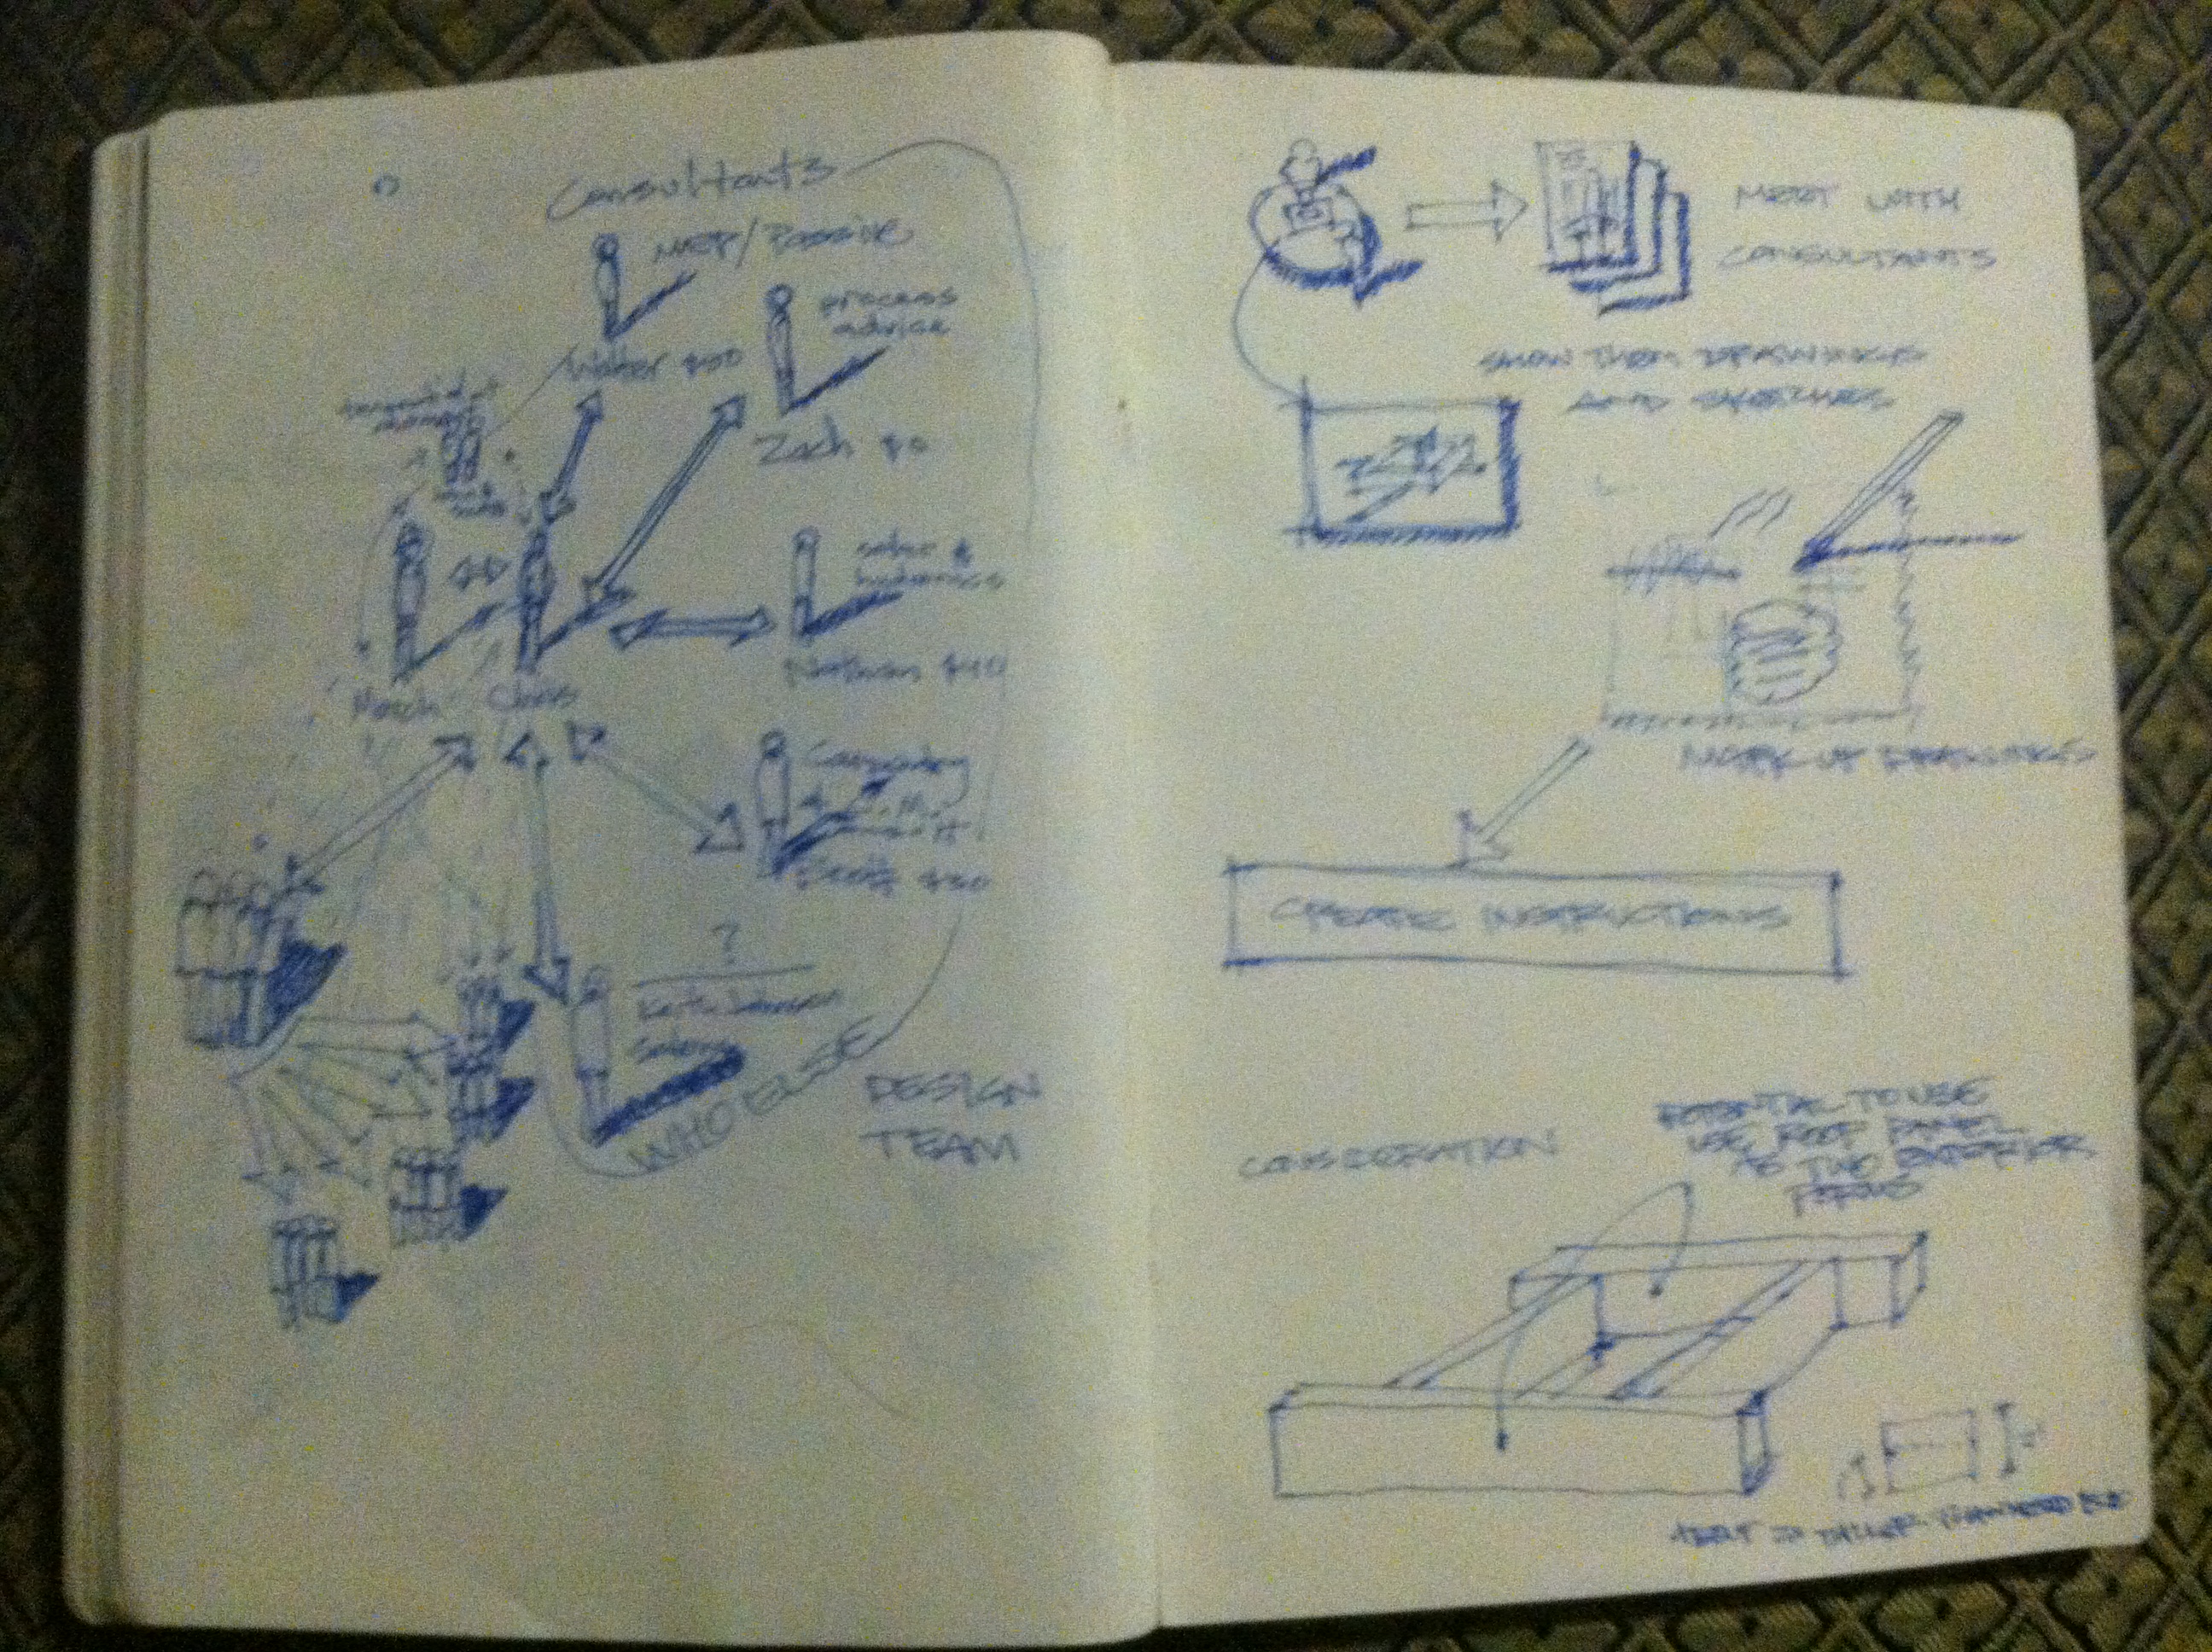 Consultants
MEP/Passive
process
advice
Walter $50
Zach $0
solar &
hydronics
Nathan $40
Chris
Carpentry
Scott $30
?
Solar
WHO ELSE
DESIGN
TEAM
MEET WITH
CONSULTANTS
SHOW THEM DRAWINGS
AND SKETCHES
MARK UP DRAWINGS
CREATE INSTRUCTIONS
CONSIDERATION
POTENTIAL TO USE
USE ROOF PANEL
AS TWO EXTERIOR
TALLER THAN NEED BE